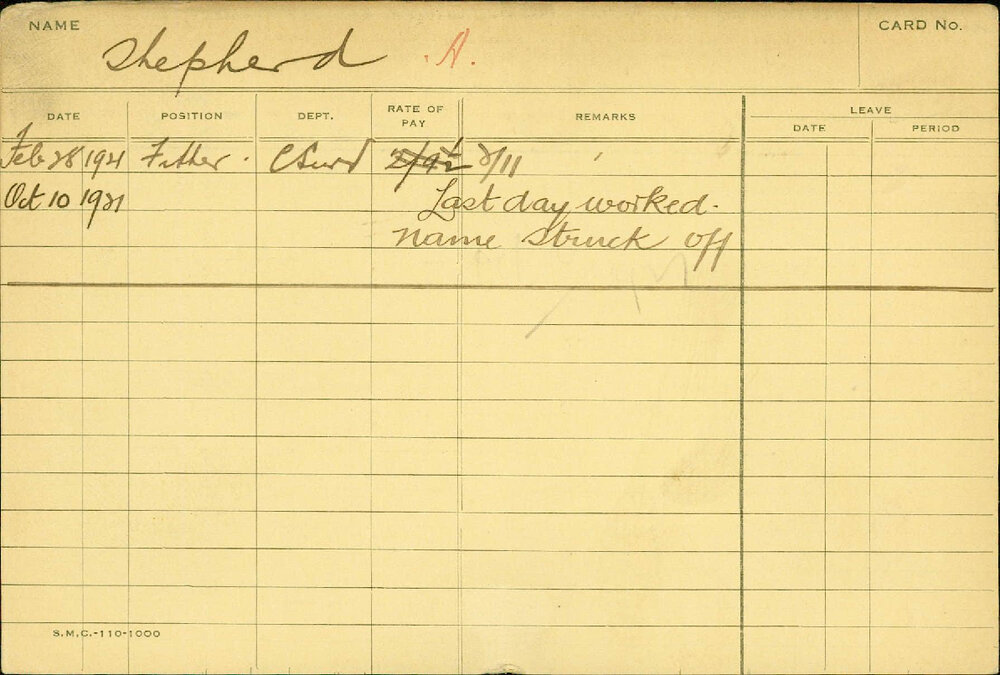 NAME Shepherd .A. CARD No.
DATE POSITION DEPT. RATE OF PAY REMARKS LEAVE
DATE PERIOD
Feb 28 1921 Fitter . 2/9½ 2/11
Oct 10 1921 Last day worked.
name struck off
S.M.C.-110-1000